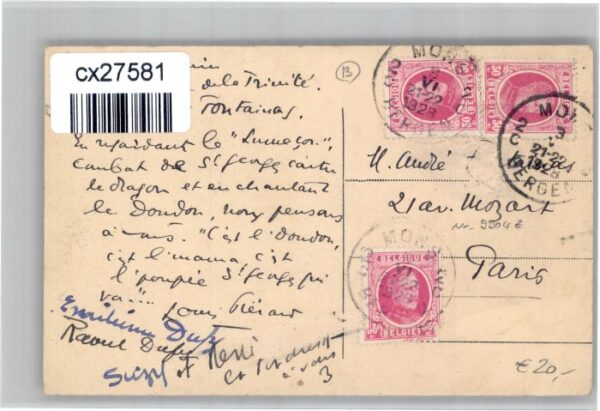 cx27581
de la Trinité.
Fontainas.
En regardant le "Lumeçon",
combat de St Georges contre
le dragon et en chantant
le Doudou, nous pensons
à vous. "C'est l'doudou,
c'est l'mama, c'est
l'poupée St Georges qui
va...
Louis Piérard
Emilienne Dufy
Raoul Dufy
et
à vous
3
13
MONS
VI
21-22
1928
BERGEN
2 MONS 2
C
21-22
1928
BERGEN
M. André
21 av. Mozart
No. 9904 E
Paris
MONS
VI
BELGIQUE
BELGIË
€ 20,-